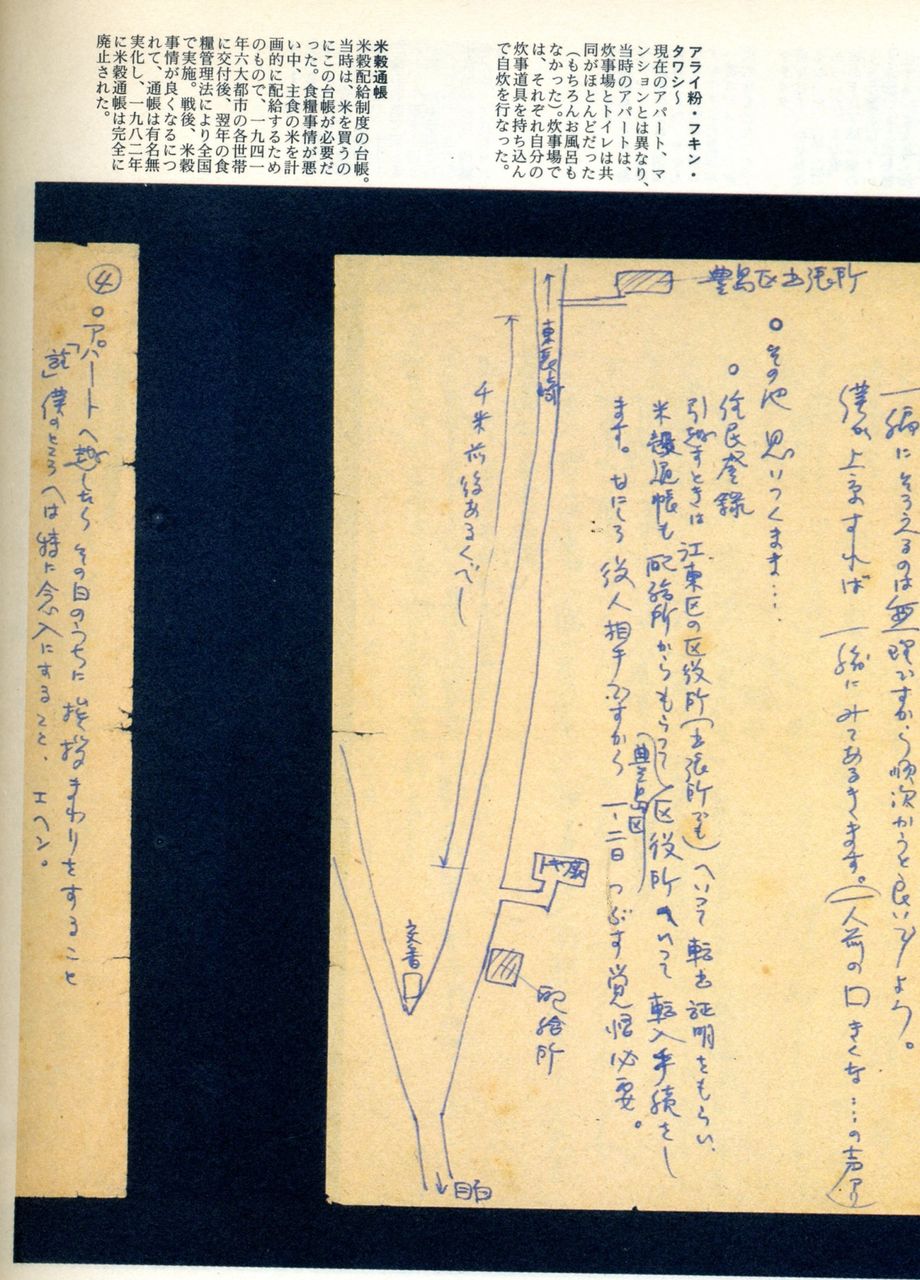 アライ粉・フキン・
タワシ〜
現在のアパート、マ
ンションとは異なり、
当時のアパートは、
炊事場とトイレは共
同がほとんどだった
(もちろんお風呂も
なかった)。炊事場で
は、それぞれ自分の
炊事道具を持ち込ん
で自炊を行なった。
米穀通帳
米穀配給制度の台帳。
当時は、米を買うの
にこの台帳が必要だ
った。食糧事情が悪
い中、主食の米を計
画的に配給するため
のもので、一九四一
年六大都市の各世帯
に交付後、翌年の食
糧管理法により全国
で実施。戦後、米穀
事情が良くなるにつ
れて、通帳は有名無
実化し、一九八二年
に米穀通帳は完全に
廃止された。
一編にそろえるのは無理ですから順次かうと良いでしょう。
僕が上京すれば一緒にみてあるきます。(一人前の口きくな…の声アリ)
○その他 思いつくまま…
○住民登録
引越すときは江東区の区役所(出張所でも)へいって転出証明をもらい、
米穀通帳も配給所からもらって(豊島区)区役所へいって転入手続をし
ます。なにしろ役人相手ですから一、二日つぶす覚悟必要。
豊島区出張所
東長崎
千米前後あるくべし
トキワ荘
交番
配給所
目白
④
○アパートへ越したらその日のうちに挨拶まわりをすること
「註」僕のところへは特に念入にすること、エヘン。